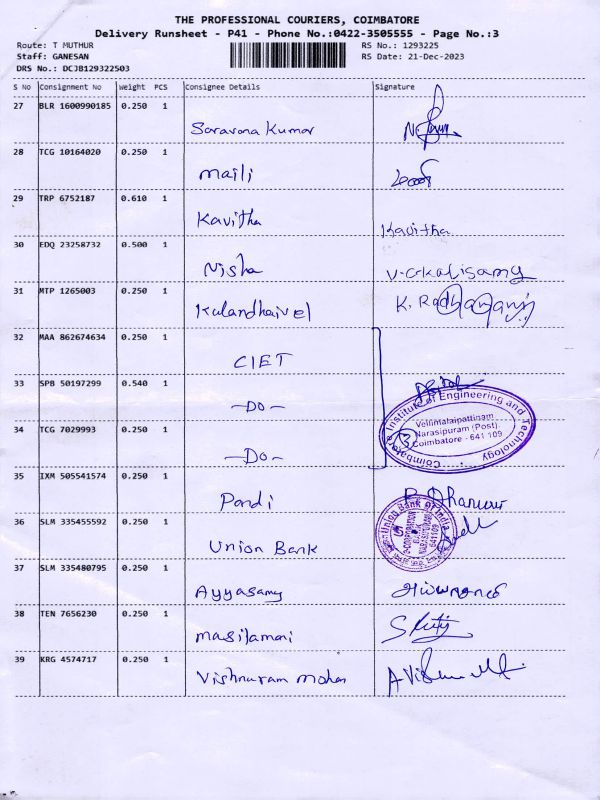 THE PROFESSIONAL COURIERS, COIMBATORE
Delivery Runsheet - P41 - Phone No.:0422-3505555 - Page No.:3
Route: T MUTHUR RS No.: 1293225
Staff: GANESAN RS Date: 21-Dec-2023
DRS No.: DCJB129322503
S No Consignment No Weight PCS Consignee Details Signature
27 BLR 1600990185 0.250 1
Saravana Kumar
28 TCG 10164020 0.250 1
maili
29 TRP 6752187 0.610 1
Kavitha Kavitha
30 EDQ 23258732 0.500 1
Nisha
31 MTP 1265003 0.250 1
Kulandhaivel
32 MAA 862674634 0.250 1
CIET
33 SPB 50197299 0.540 1
-DO-
Coimbatore Institute of Engineering and Technology
Vellimalaipattinam
Narasipuram (Post)
Coimbatore - 641 109
34 TCG 7029993 0.250 1
-DO-
35 IXM 505541574 0.250 1
Pandi
36 SLM 335455592 0.250 1
Union Bank of India
Union Bank
37 SLM 335480795 0.250 1
Ayyasamy
38 TEN 7656230 0.250 1
masilamani
39 KRG 4574717 0.250 1
Vishnuram mohan